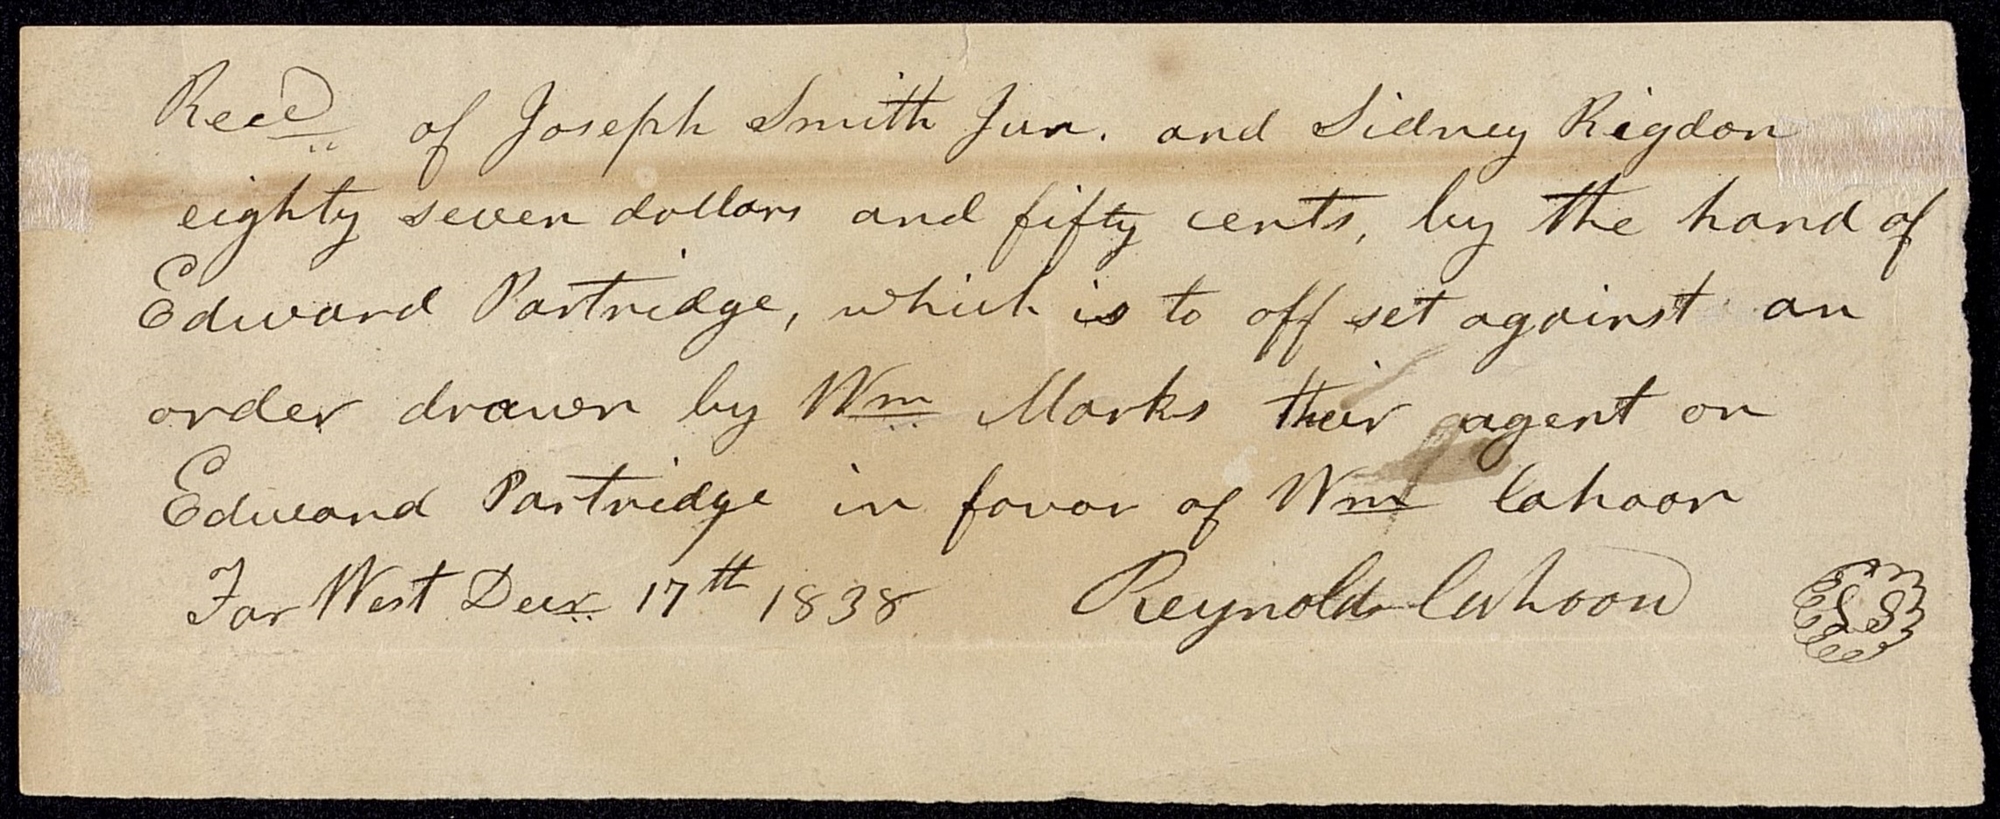 Recd of Joseph Smith Jun. and Sidney Rigdon
eighty seven dollars and fifty cents, by the hand of
Edward Partridge, which is to off set against an
order drawn by Wm Marks their agent on
Edward Partridge in favor of Wm Cahoon
Far West Decr 17th 1838 Reynolds Cahoon LS